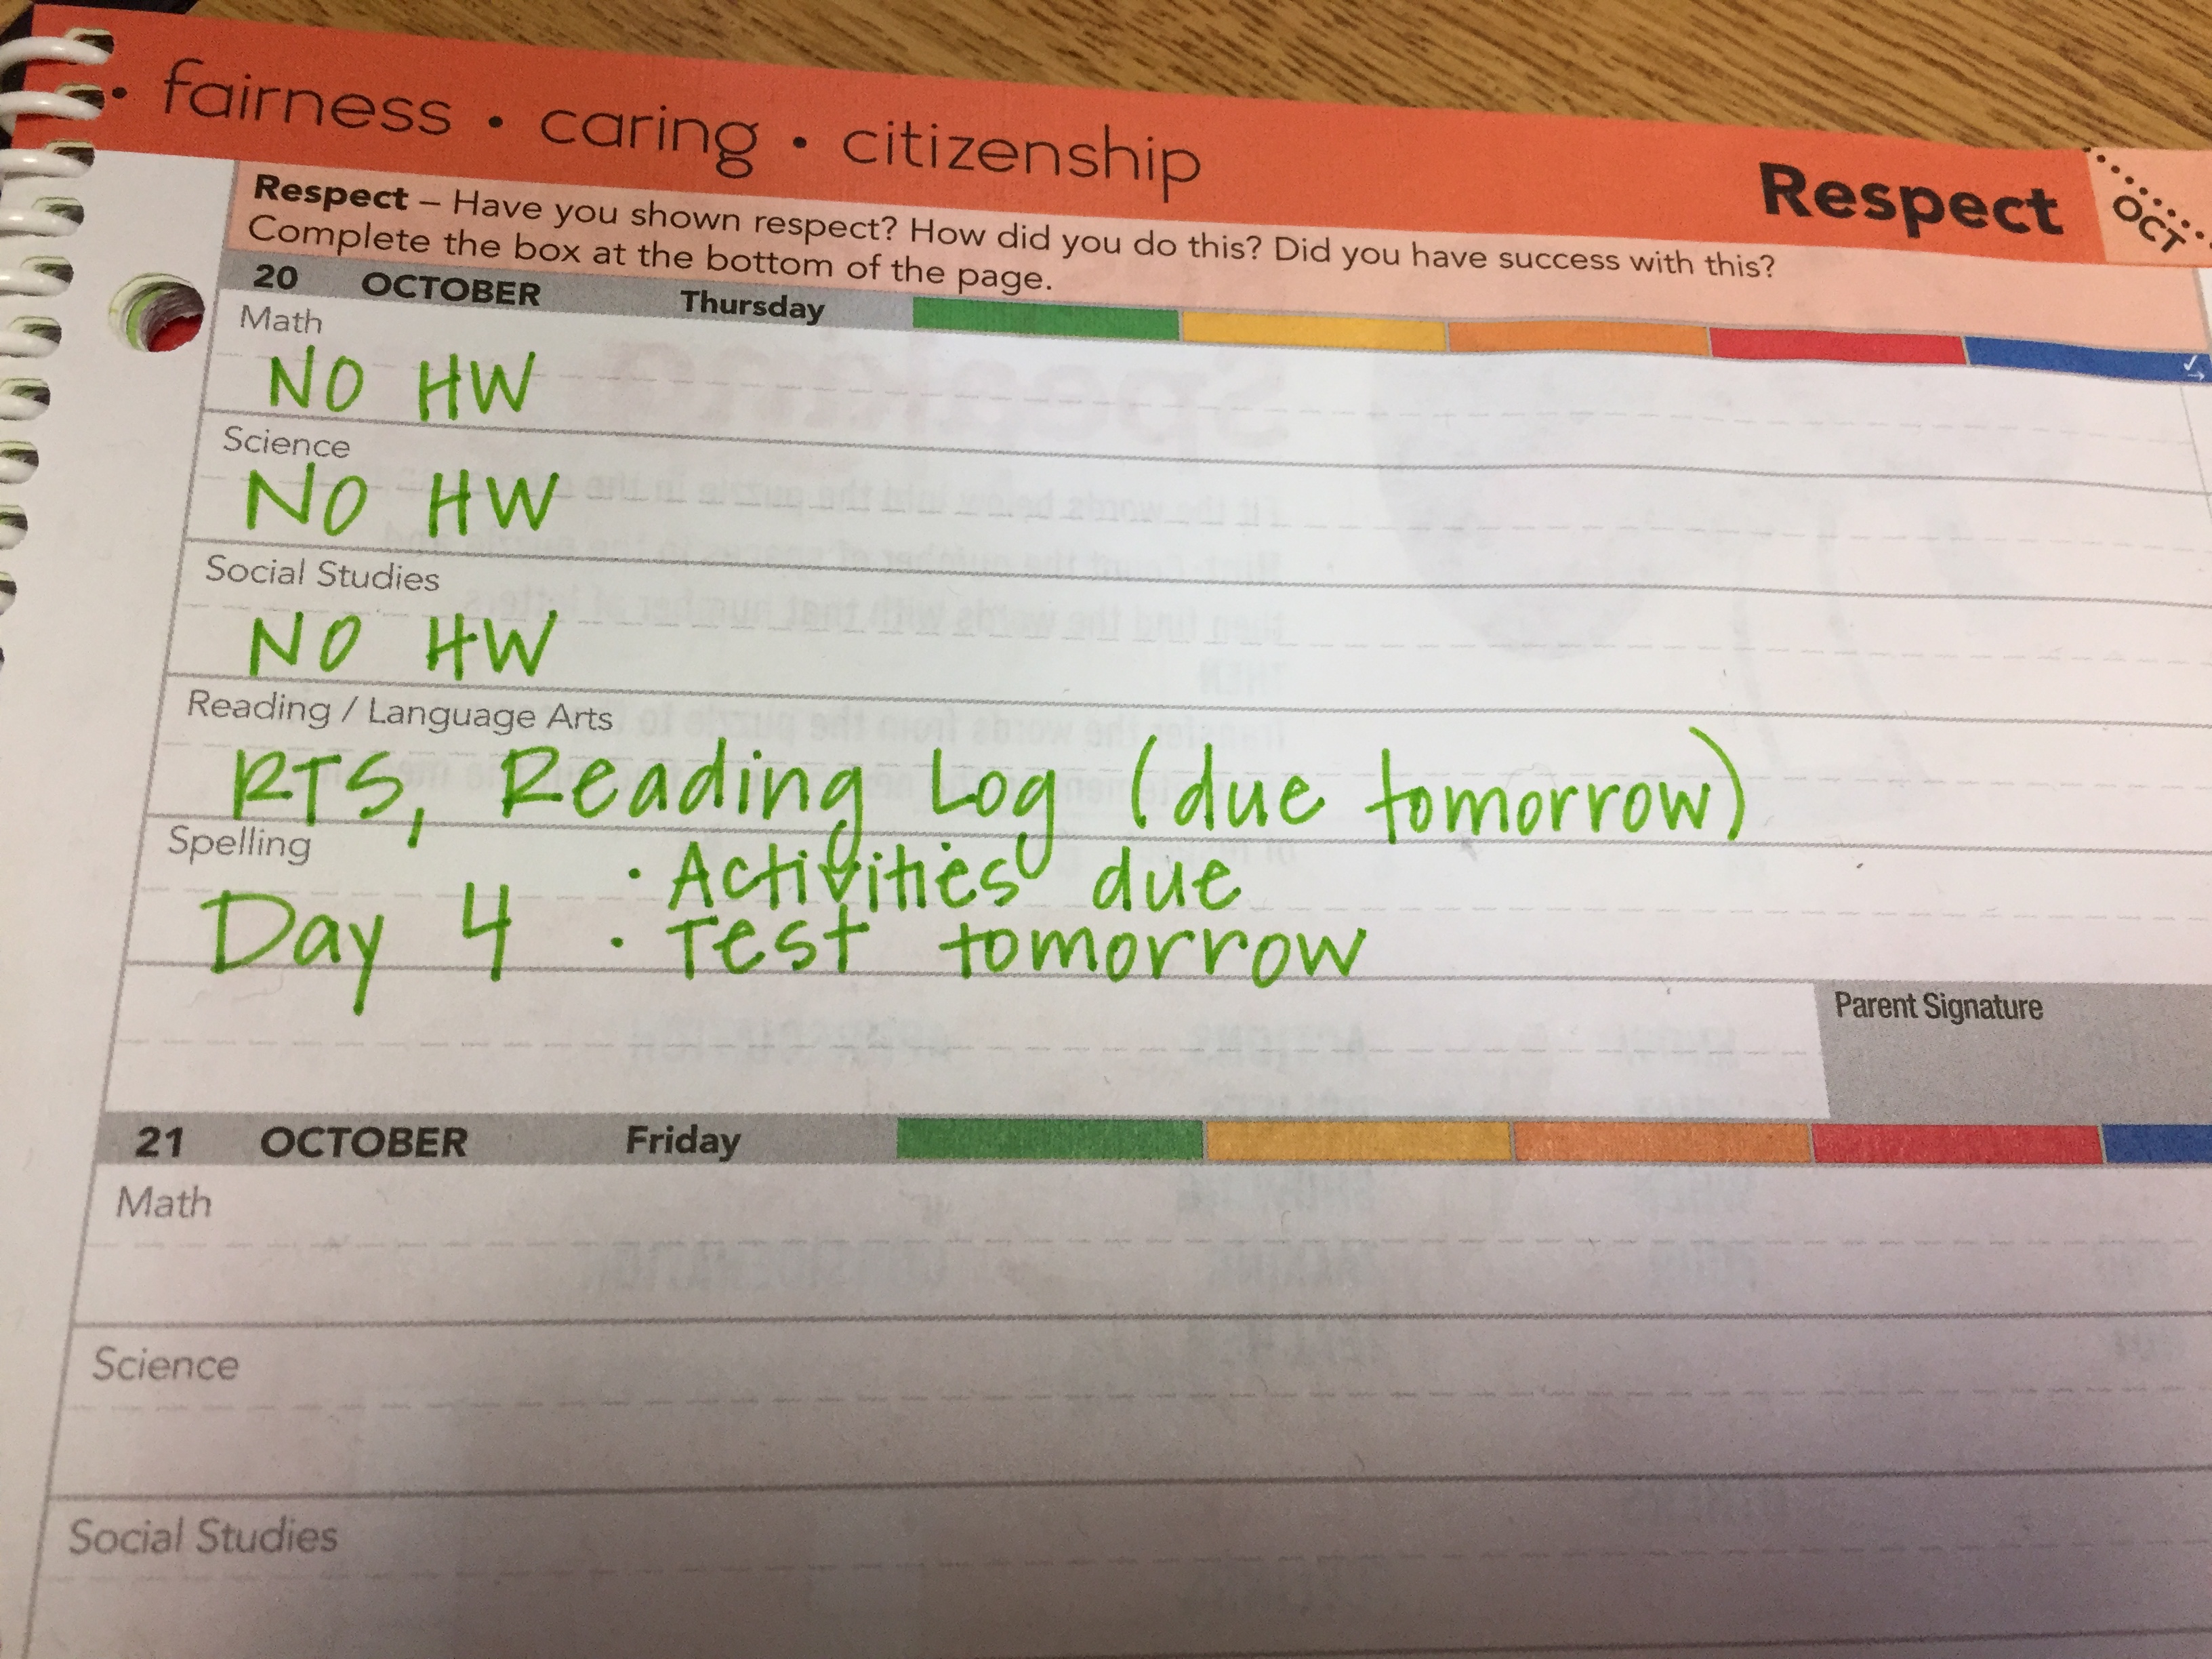 • fairness • caring • citizenship
Respect
OCT
Respect – Have you shown respect? How did you do this? Did you have success with this?
Complete the box at the bottom of the page.
20 OCTOBER Thursday
Math
NO HW
Science
NO HW
Social Studies
NO HW
Reading / Language Arts
RTS, Reading Log (due tomorrow)
Spelling
• Activities due
Day 4 • Test tomorrow
Parent Signature
21 OCTOBER Friday
Math
Science
Social Studies